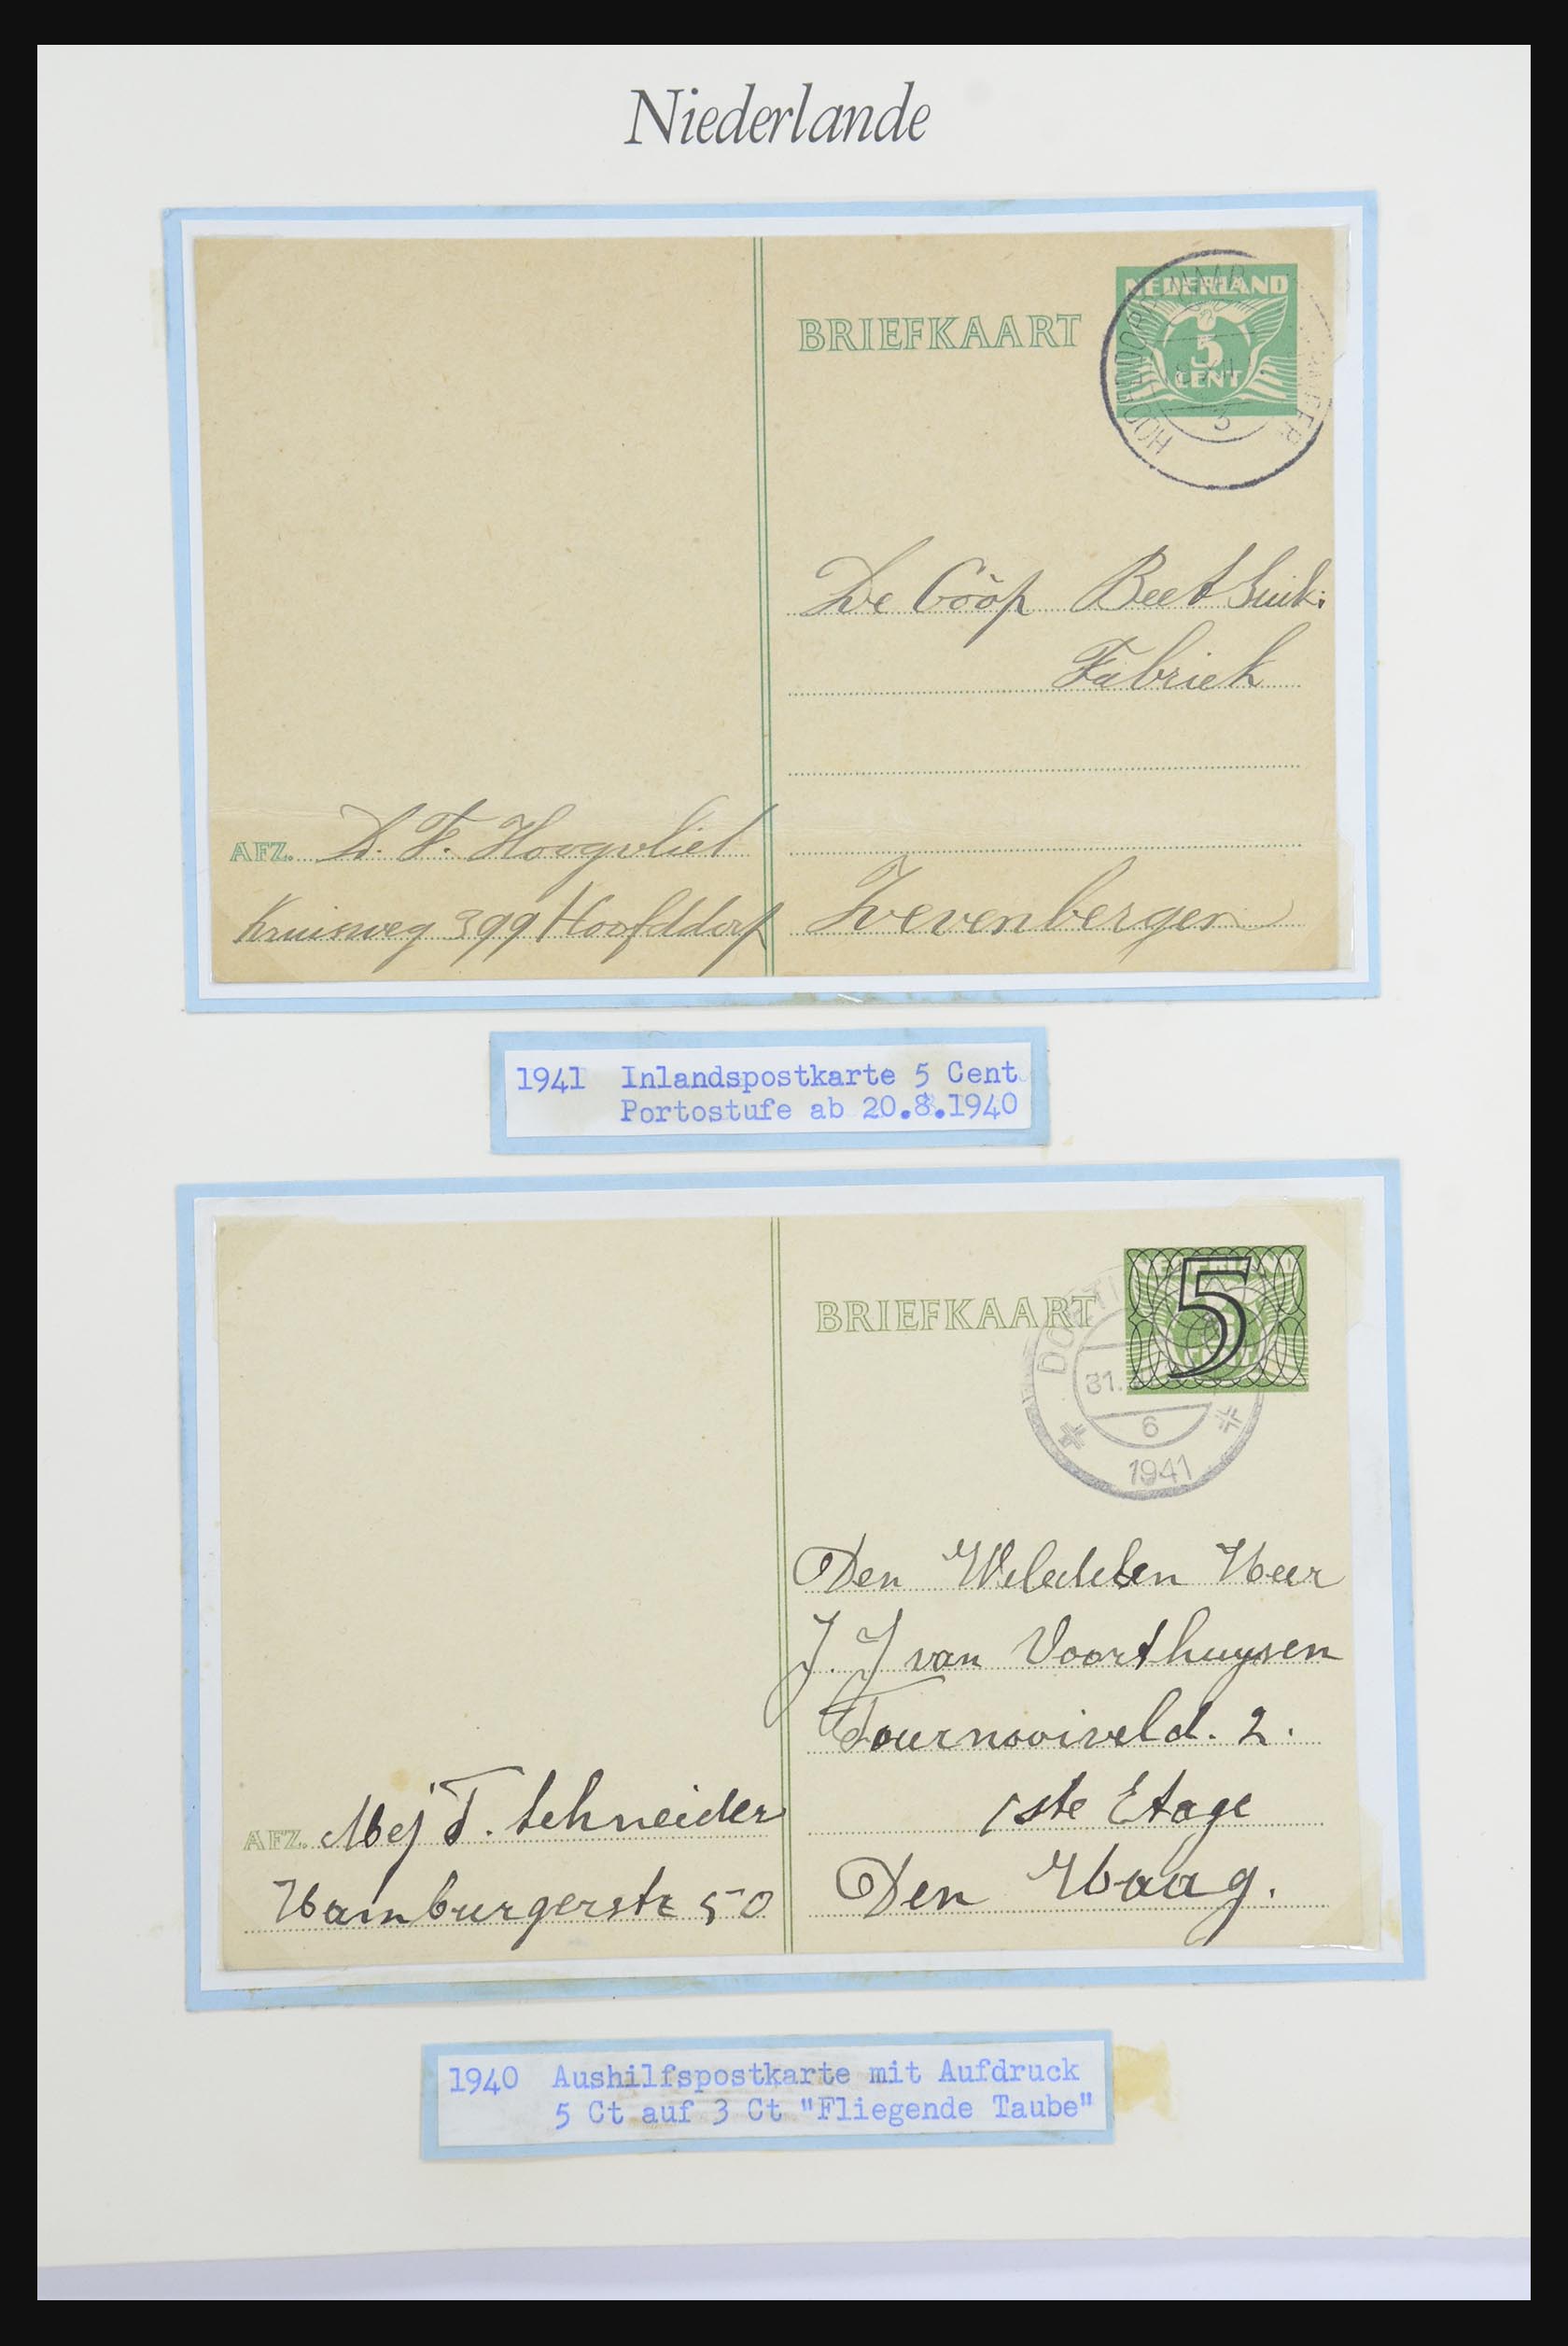 Niederlande
BRIEFKAART
NEDERLAND
5
CENT
HOOFDDORP
3
De Coöp Beet Suik:
Fabriek
AFZ. D. F. Hoogvliet
Kruisweg 399 Hoofddorp
Zevenbergen
1941 Inlandspostkarte 5 Cent
Portostufe ab 20.8.1940
BRIEFKAART
NEDERLAND
5
31.
6
1941
Den Weledelen Heer
J. J van Voorthuysen
Tournooiveld. 2.
1ste Etage
Den Haag.
AFZ. Mej T. Schneider
Hamburgerstr 50
1940 Aushilfspostkarte mit Aufdruck
5 Ct auf 3 Ct "Fliegende Taube"